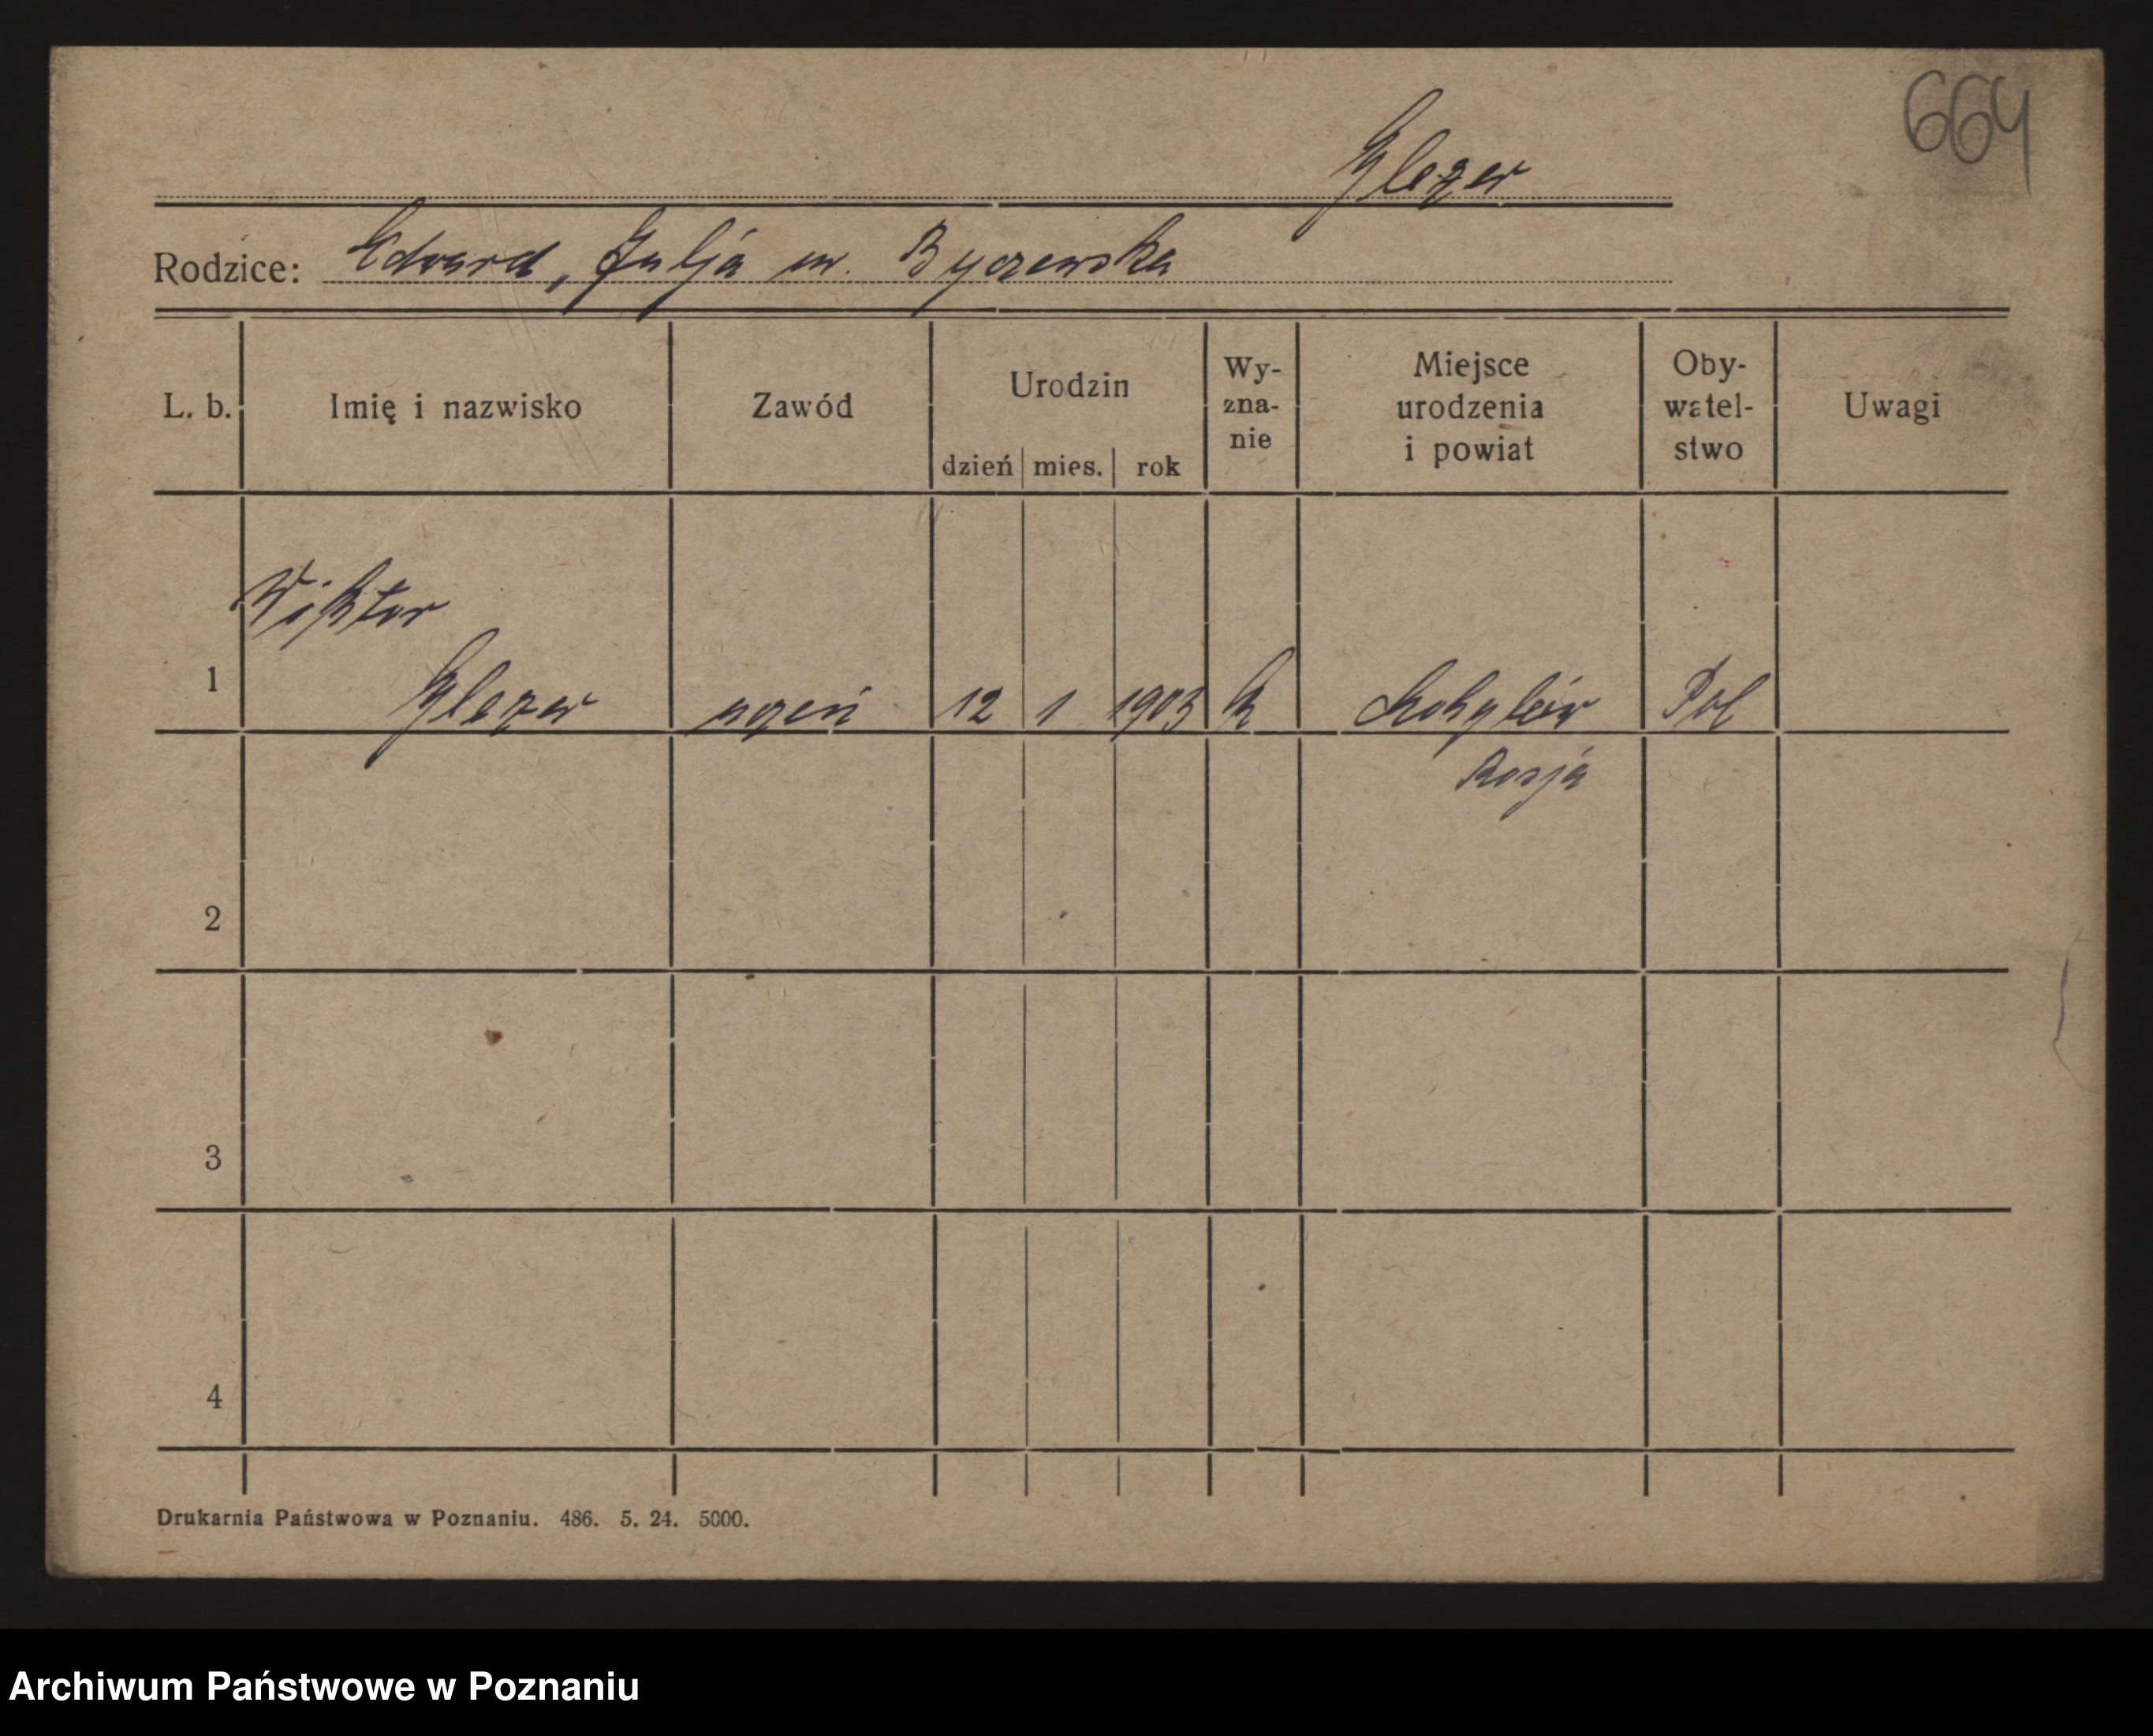 664
Glezer
Rodzice: Edward, Julja ur. Byczewska
L. b. Imię i nazwisko Zawód Urodzin dzień mies. rok Wy-zna-nie Miejsce urodzenia i powiat Oby-watel-stwo Uwagi
Wiktor
1 Glezer uczeń 12 1 1903 k Mohylów Pol
Rosja
2
3
4
Drukarnia Państwowa w Poznaniu. 486. 5. 24. 5000.
Archiwum Państwowe w Poznaniu